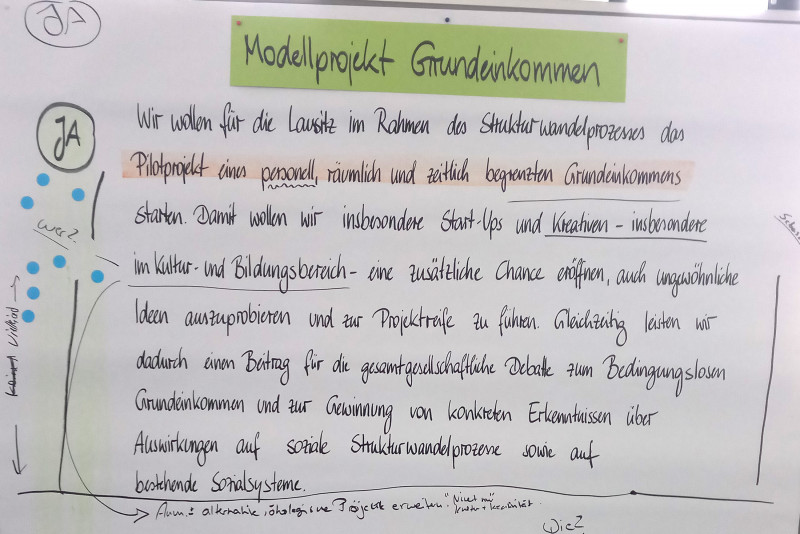 JA
Modellprojekt Grundeinkommen
JA
Wir wollen für die Lausitz im Rahmen des Strukturwandelprozesses das
Pilotprojekt eines personell, räumlich und zeitlich begrenzten Grundeinkommens
starten. Damit wollen wir insbesondere Start-Ups und Kreativen - insbesondere
im Kultur- und Bildungsbereich - eine zusätzliche Chance eröffnen, auch ungewöhnliche
Ideen auszuprobieren und zur Projektreife zu führen. Gleichzeitig leisten wir
dadurch einen Beitrag für die gesamtgesellschaftliche Debatte zum Bedingungslosen
Grundeinkommen und zur Gewinnung von konkreten Erkenntnissen über
Auswirkungen auf soziale Strukturwandelprozesse sowie auf
bestehende Sozialsysteme.
wer?
Anm.: alternative, ökologische Projekte erweitern
Wie?